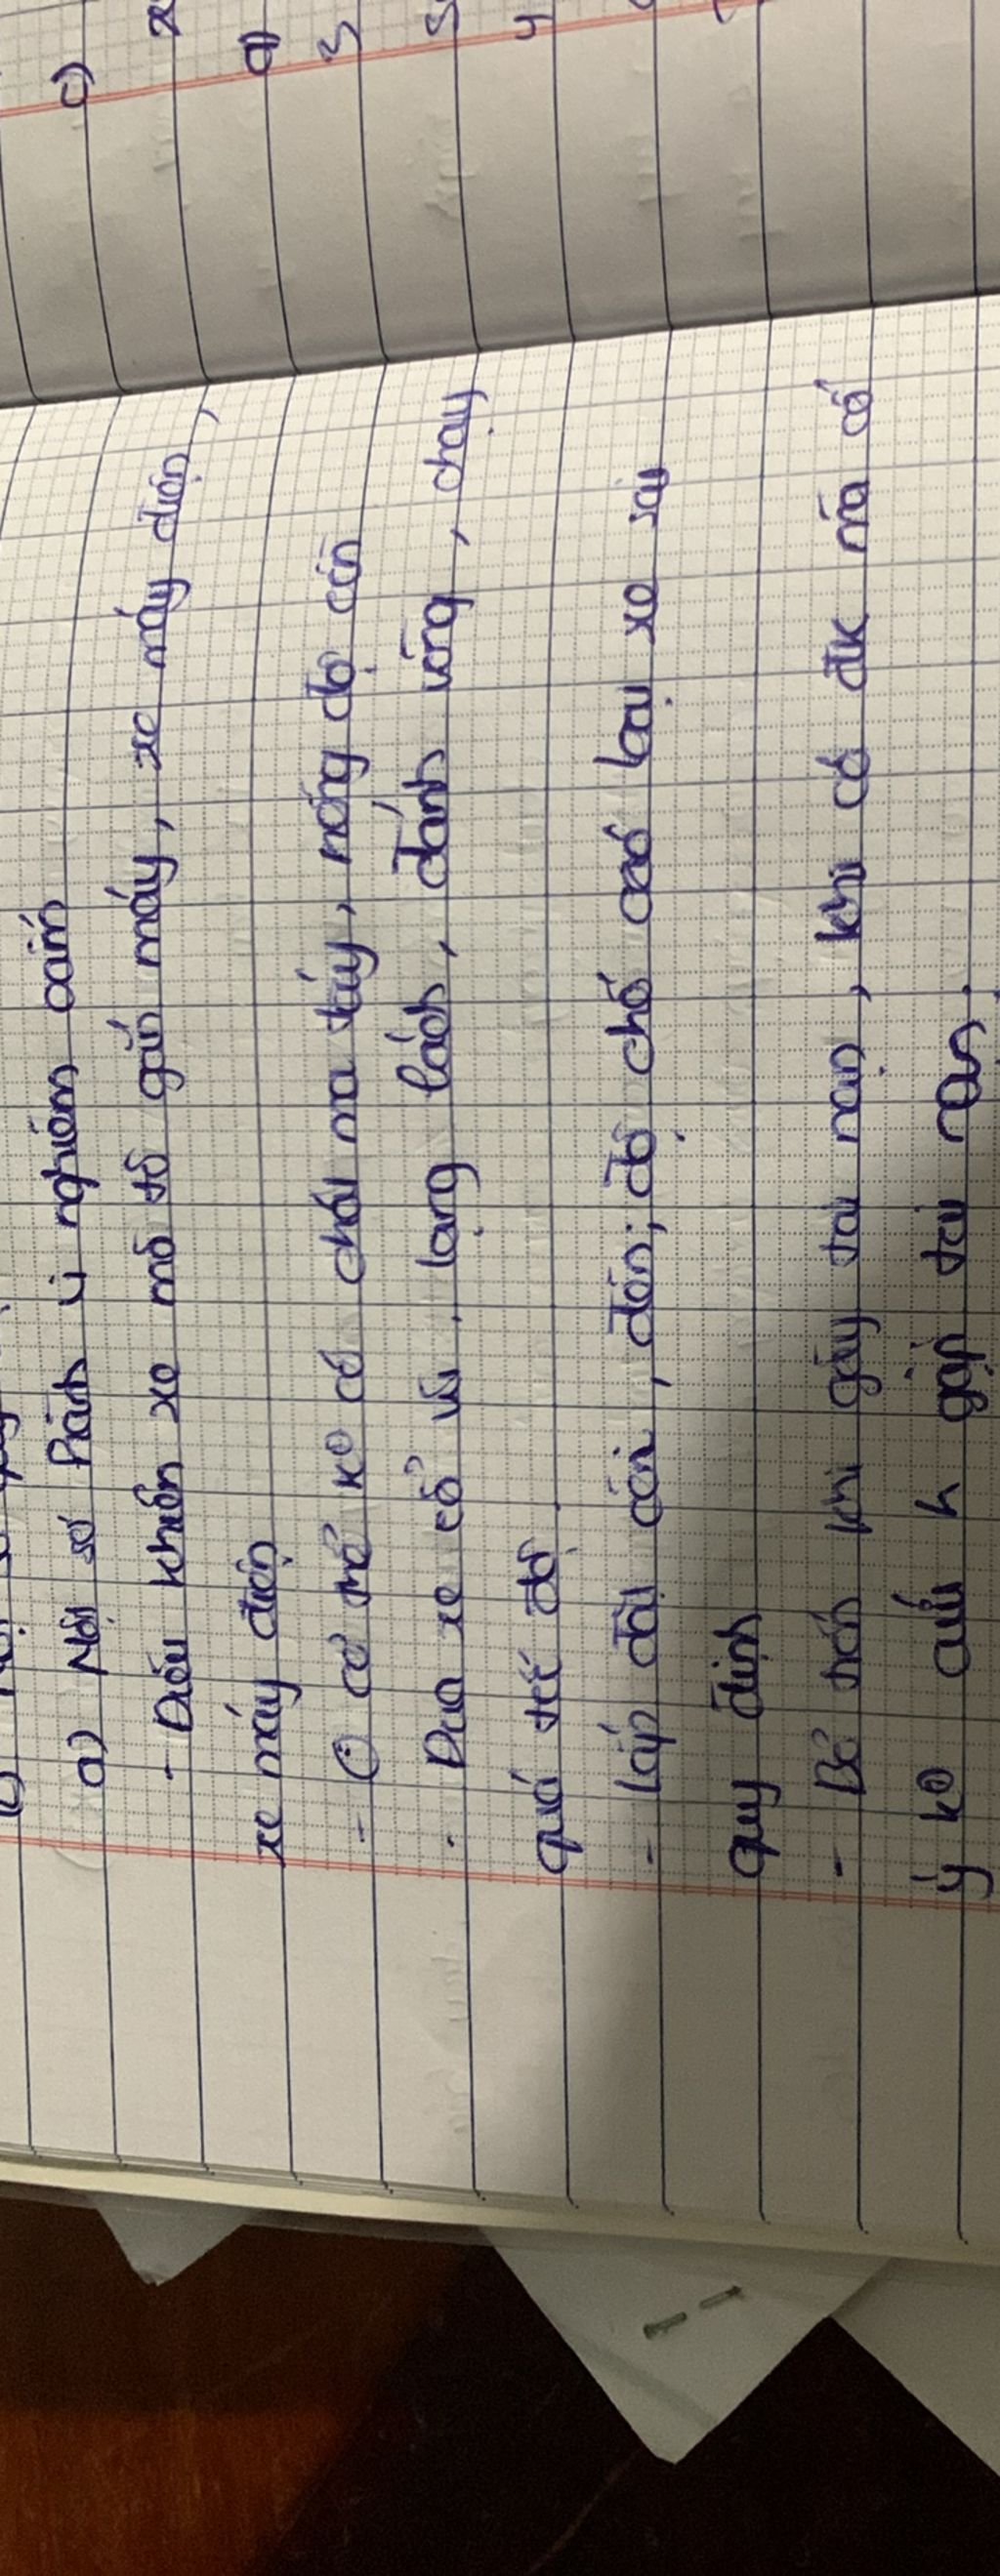 a) Một số hành vi nghiêm cấm
- Điều khiển xe mô tô gắn máy, xe máy điện,
xe máy điện
- Ở cơ thể ko có chất ma túy, nồng độ cồn
- Đua xe cổ vũ, lạng lách, đánh võng, chạy
quá tốc độ.
- Lắp đặt còi, đèn; độ chế các loại xe sai
quy định
- Bỏ trốn khi gây tai nạn, khi có đk mà cố
ý ko cứu h gặp tai nạn.
c)